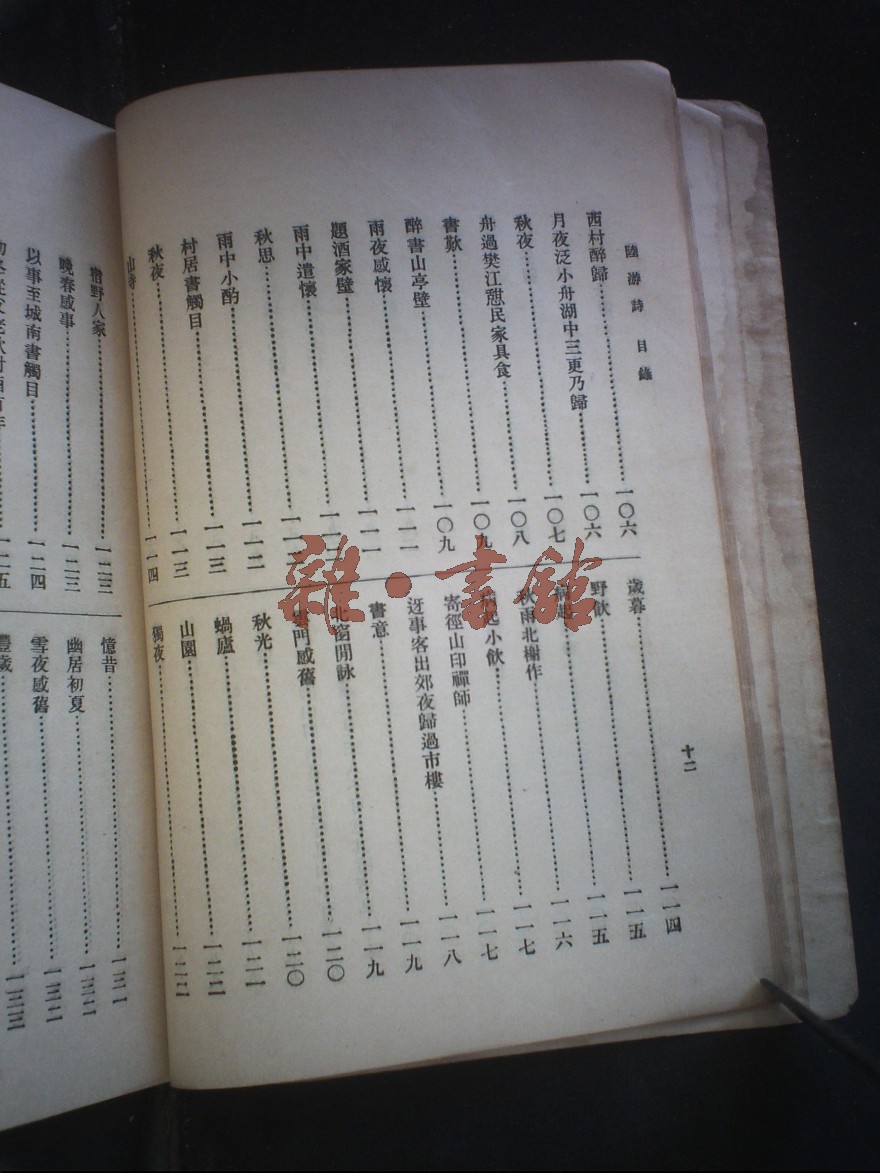 陸游詩 目錄
十二
西村醉歸……一〇六
月夜泛小舟湖中三更乃歸……一〇六
秋夜……一〇七
舟過樊江憇民家具食……一〇八
書歎……一〇九
醉書山亭壁……一〇九
雨夜感懷……一一一
題酒家壁……一一一
雨中遣懷……一一二
秋思……
雨中小酌……一一二
村居書觸目……一一三
秋夜……一一三
山寺……一一四
歲暮……一一四
野飲……一一五
起……一一五
秋雨北榭作……一一六
起小飲……一一七
寄徑山印禪師……一一七
迓事客出郊夜歸過市樓……一一八
書意……一一九
北窗閒詠……一一九
門感舊……一二〇
秋光……一二〇
蝸廬……一二一
山園……一二二
獨夜……一二二
宿野人家……一二三
晚春感事……一二三
以事至城南書觸目……一二四
一二五
憶昔……一三一
幽居初夏……一三二
雪夜感舊……一三二
豐歲……一三三
雜·書館